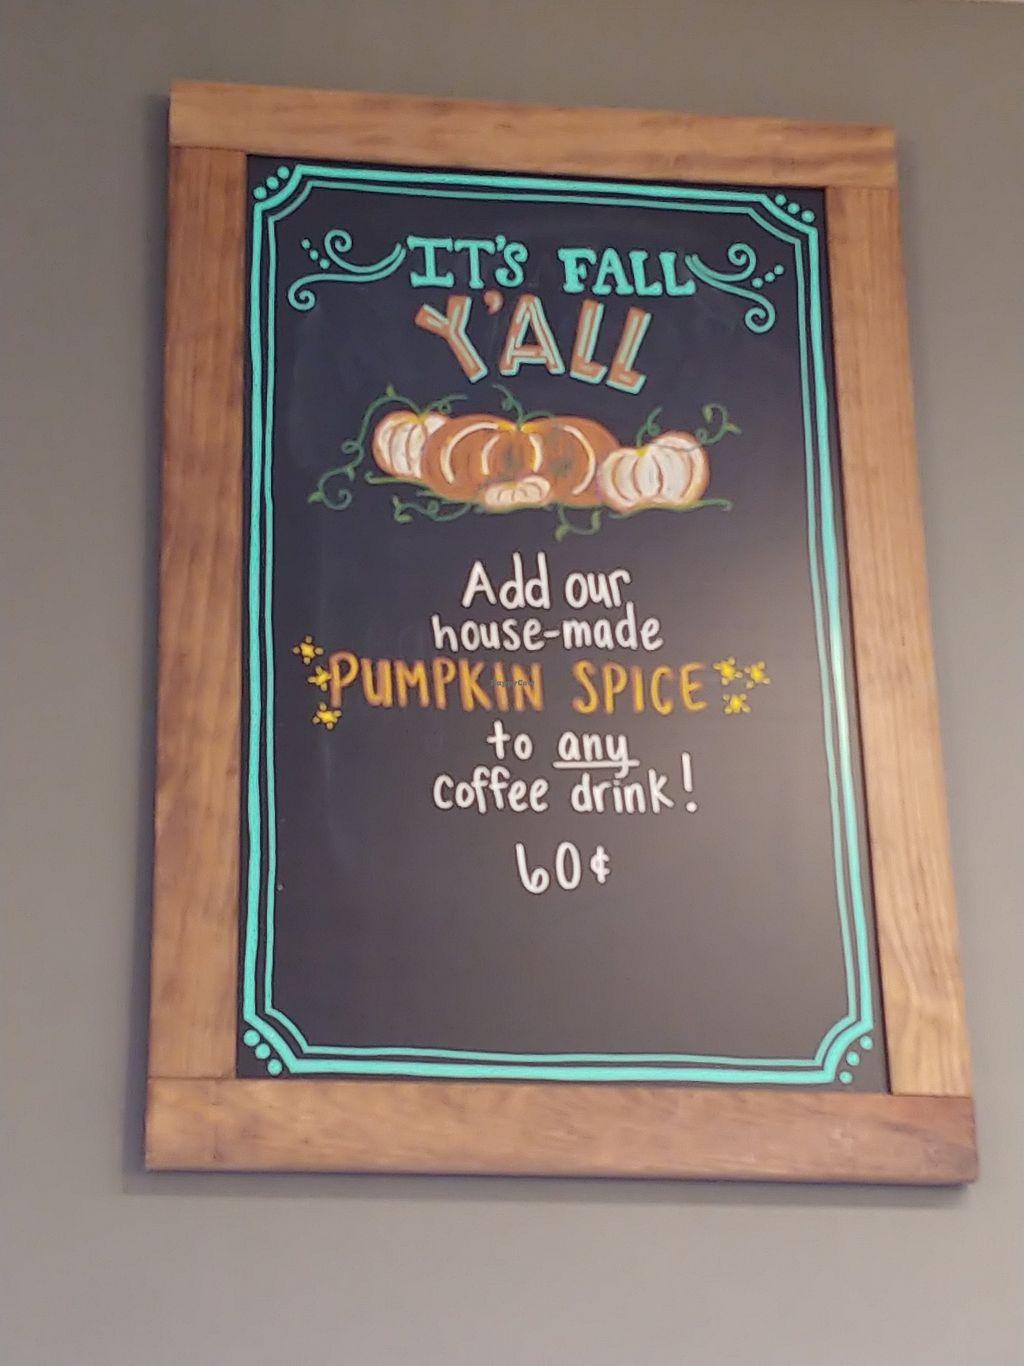 IT'S FALL
Y'ALL
Add our
house-made
PUMPKIN SPICE
to any
coffee drink!
60¢